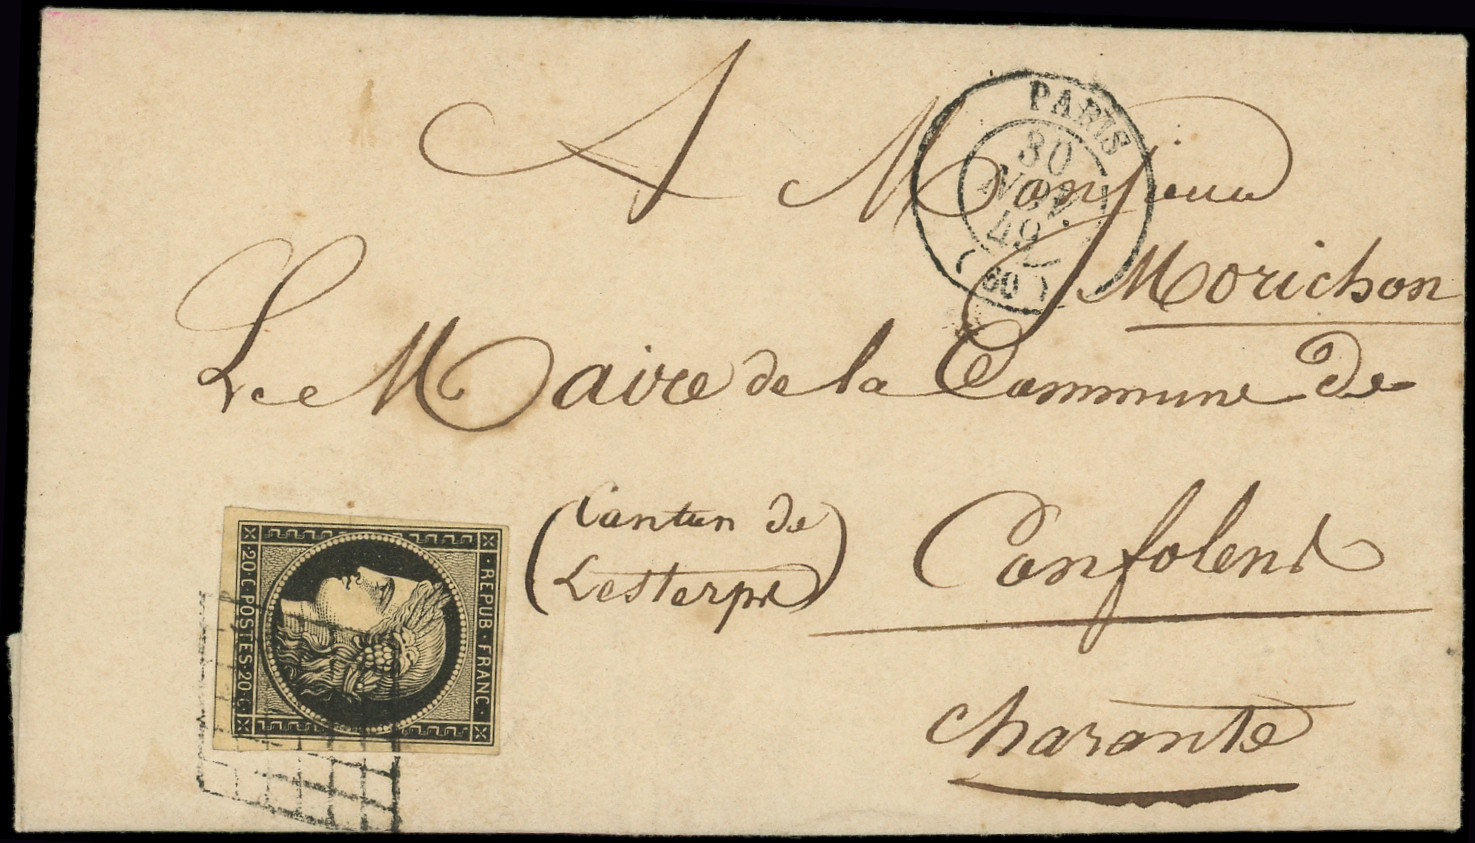 A Monsieur
PARIS
30
NOV.
49
(60)
Morichon
Le Maire de la Commune de
(Canton de
Lesterps)
Confolens
Charente
REPUB · FRANC ·
· 20 · C · POSTES · 20 · C